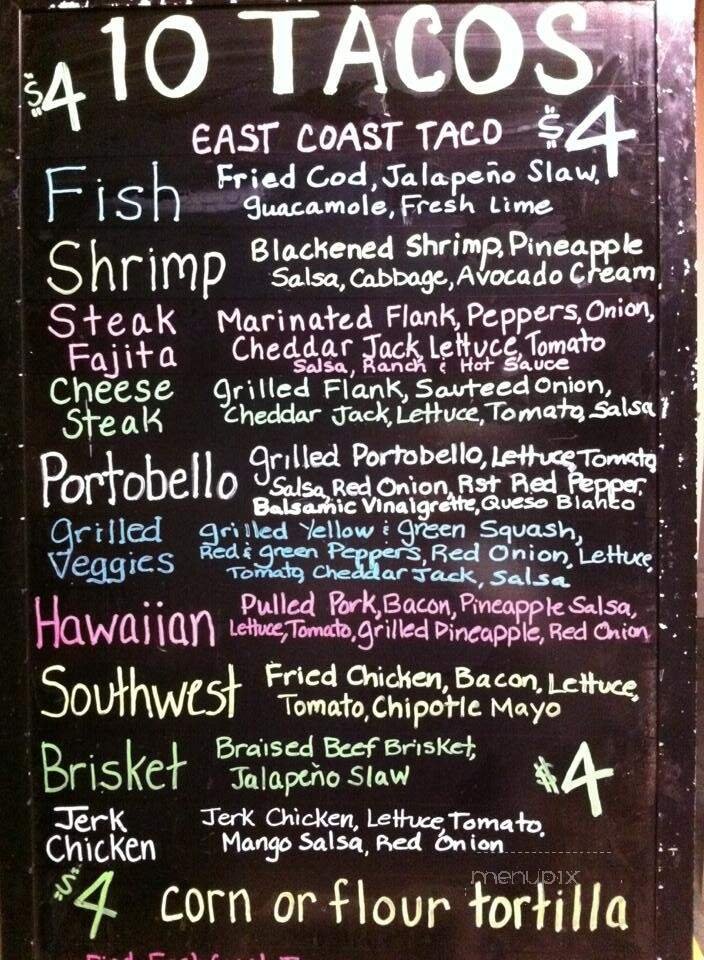 10 TACOS
$4
EAST COAST TACO $4
Fish Fried Cod, Jalapeño Slaw,
guacamole, Fresh Lime
Shrimp Blackened Shrimp, Pineapple
Salsa, Cabbage, Avocado Cream
Steak Marinated Flank, Peppers, Onion,
Fajita Cheddar Jack, Lettuce, Tomato
Salsa, Ranch & Hot Sauce
Cheese grilled Flank, Sauteed Onion,
Steak Cheddar Jack, Lettuce, Tomato, Salsa
Portobello grilled Portobello, Lettuce, Tomato
Salsa, Red Onion, Rst Red Pepper,
Balsamic Vinaigrette, Queso Blanco
grilled grilled Yellow & green Squash,
Veggies Red & green Peppers, Red Onion, Lettuce,
Tomato, Cheddar Jack, Salsa
Hawaiian Pulled Pork, Bacon, Pineapple Salsa,
Lettuce, Tomato, grilled Pineapple, Red Onion
Southwest Fried Chicken, Bacon, Lettuce,
Tomato, Chipotle Mayo
Brisket Braised Beef Brisket,
Jalapeño Slaw $4
Jerk Jerk Chicken, Lettuce, Tomato,
Chicken Mango Salsa, Red Onion
menupix
$4 corn or flour tortilla